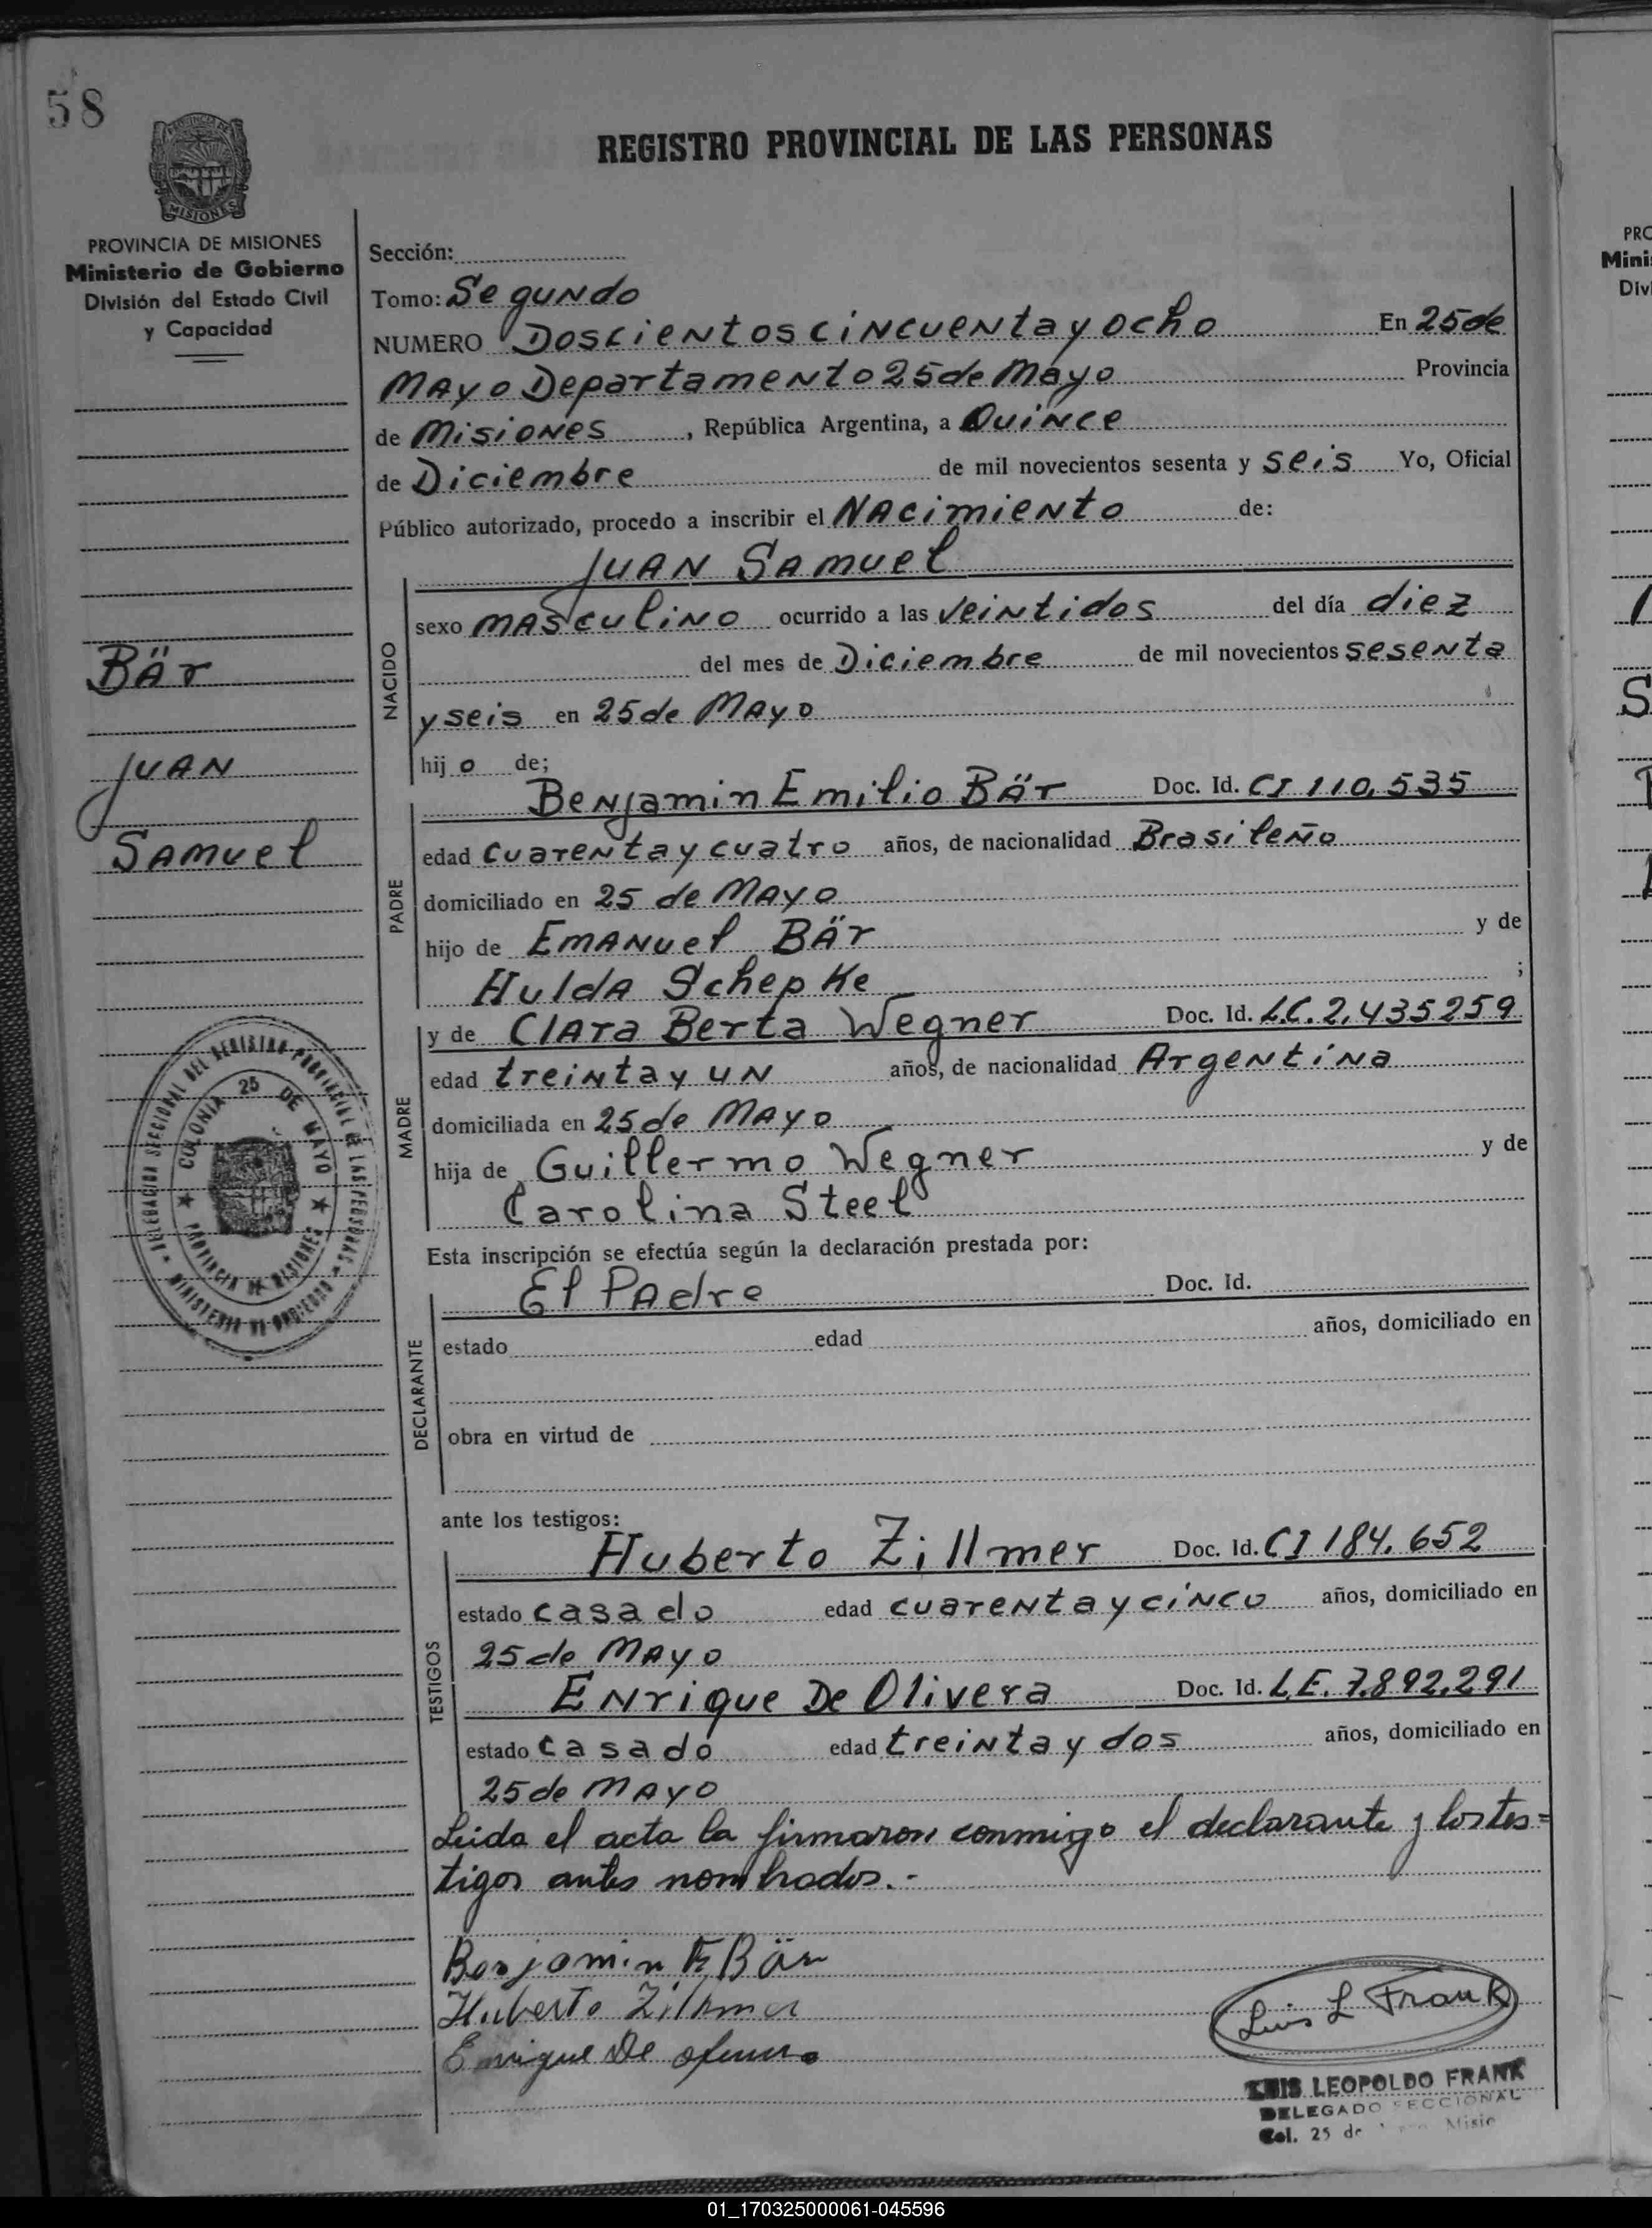 58
REGISTRO PROVINCIAL DE LAS PERSONAS
MISIONES
PROVINCIA DE MISIONES
Ministerio de Gobierno
División del Estado Civil
y Capacidad
Bär
Juan
Samuel
DELEGACION SECCIONAL DEL REGISTRO PROVINCIAL DE LAS PERSONAS
MINISTERIO DE GOBIERNO
COLONIA 25 DE MAYO
PROVINCIA DE MISIONES
Sección:
Tomo: Segundo
NUMERO Doscientos cincuenta y ocho En 25 de
Mayo Departamento 25 de Mayo Provincia
de Misiones, República Argentina, a Quince
de Diciembre de mil novecientos sesenta y seis Yo, Oficial
Público autorizado, procedo a inscribir el Nacimiento de:
Juan Samuel
NACIDO
sexo masculino ocurrido a las veintidos del día diez
del mes de Diciembre de mil novecientos sesenta
y seis en 25 de Mayo
hijo de;
PADRE
Benjamin Emilio Bär Doc. Id. CI 110,535
edad cuarenta y cuatro años, de nacionalidad Brasileño
domiciliado en 25 de Mayo
hijo de Emanuel Bär y de
Hulda Schepke ;
MADRE
y de Clara Berta Wegner Doc. Id. L.C. 2,435259
edad treinta y un años, de nacionalidad Argentina
domiciliada en 25 de Mayo
hija de Guillermo Wegner y de
Carolina Steel
Esta inscripción se efectúa según la declaración prestada por:
DECLARANTE
El Padre Doc. Id.
estado edad años, domiciliado en
obra en virtud de
ante los testigos:
TESTIGOS
Huberto Zillmer Doc. Id. CI 184.652
estado casado edad cuarenta y cinco años, domiciliado en
25 de Mayo
Enrique De Olivera Doc. Id. L.E. 7.892.291
estado casado edad treinta y dos años, domiciliado en
25 de Mayo
Leida el acta la firmaron conmigo el declarante y los tes=
tigos antes nombrados.-
Benjamin E Bär
Huberto Zillmer
Enrique De
Luis L Frank
LUIS LEOPOLDO FRANK
DELEGADO SECCIONAL
Col. 25 de
01_170325000061-045596